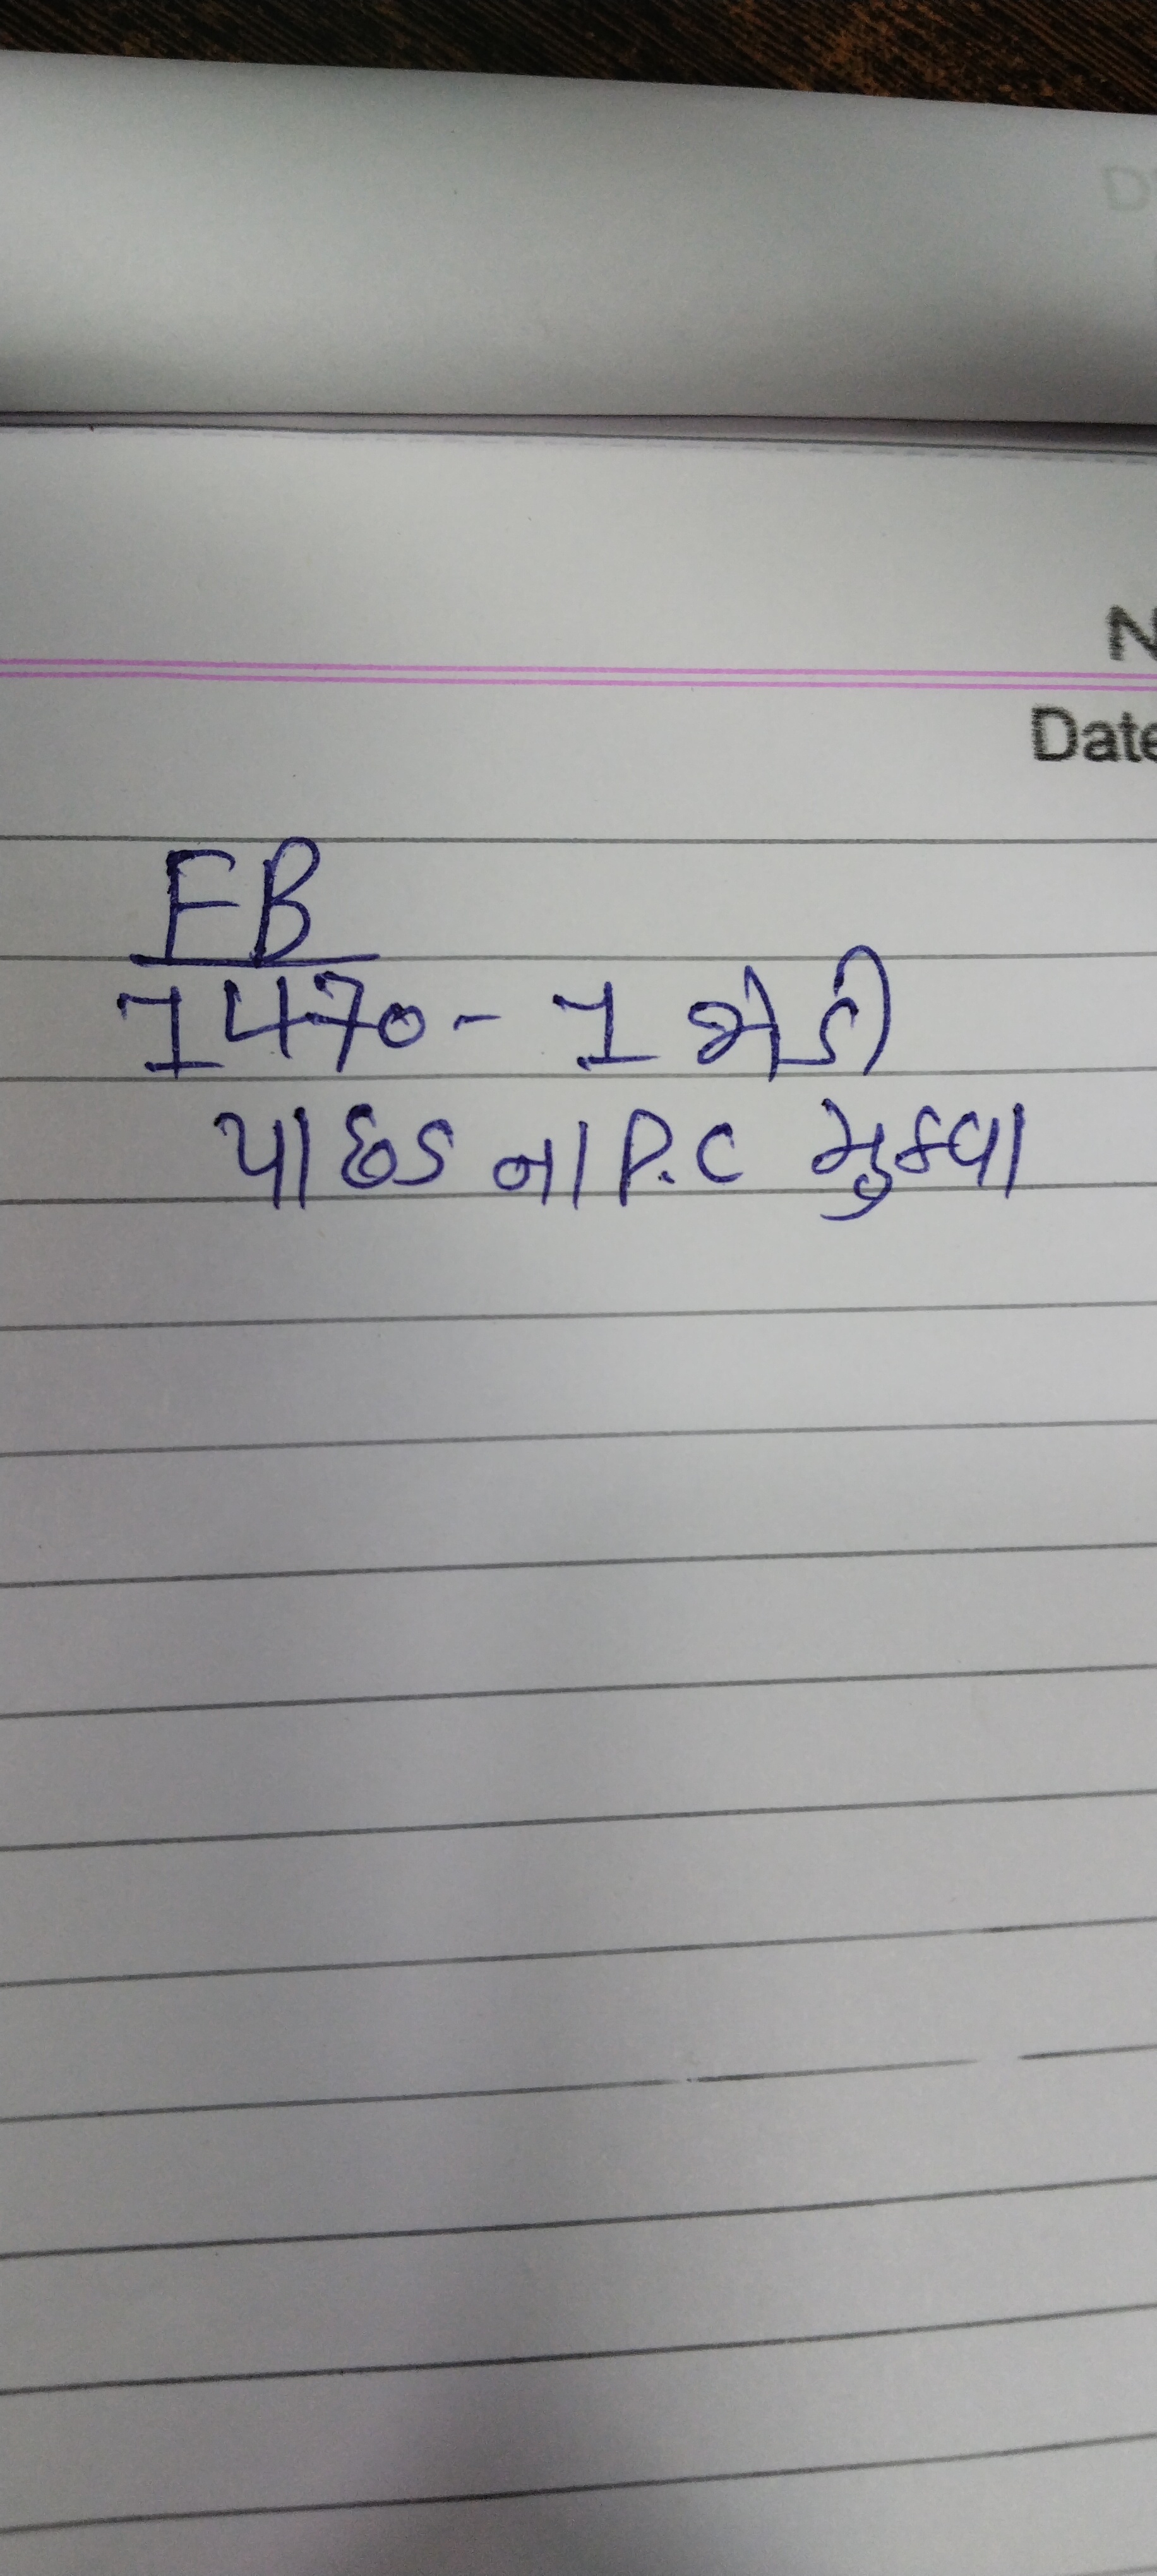 N
Date
FB
1470 - 1 જોડી
પાછડ ના P.C મુકવા